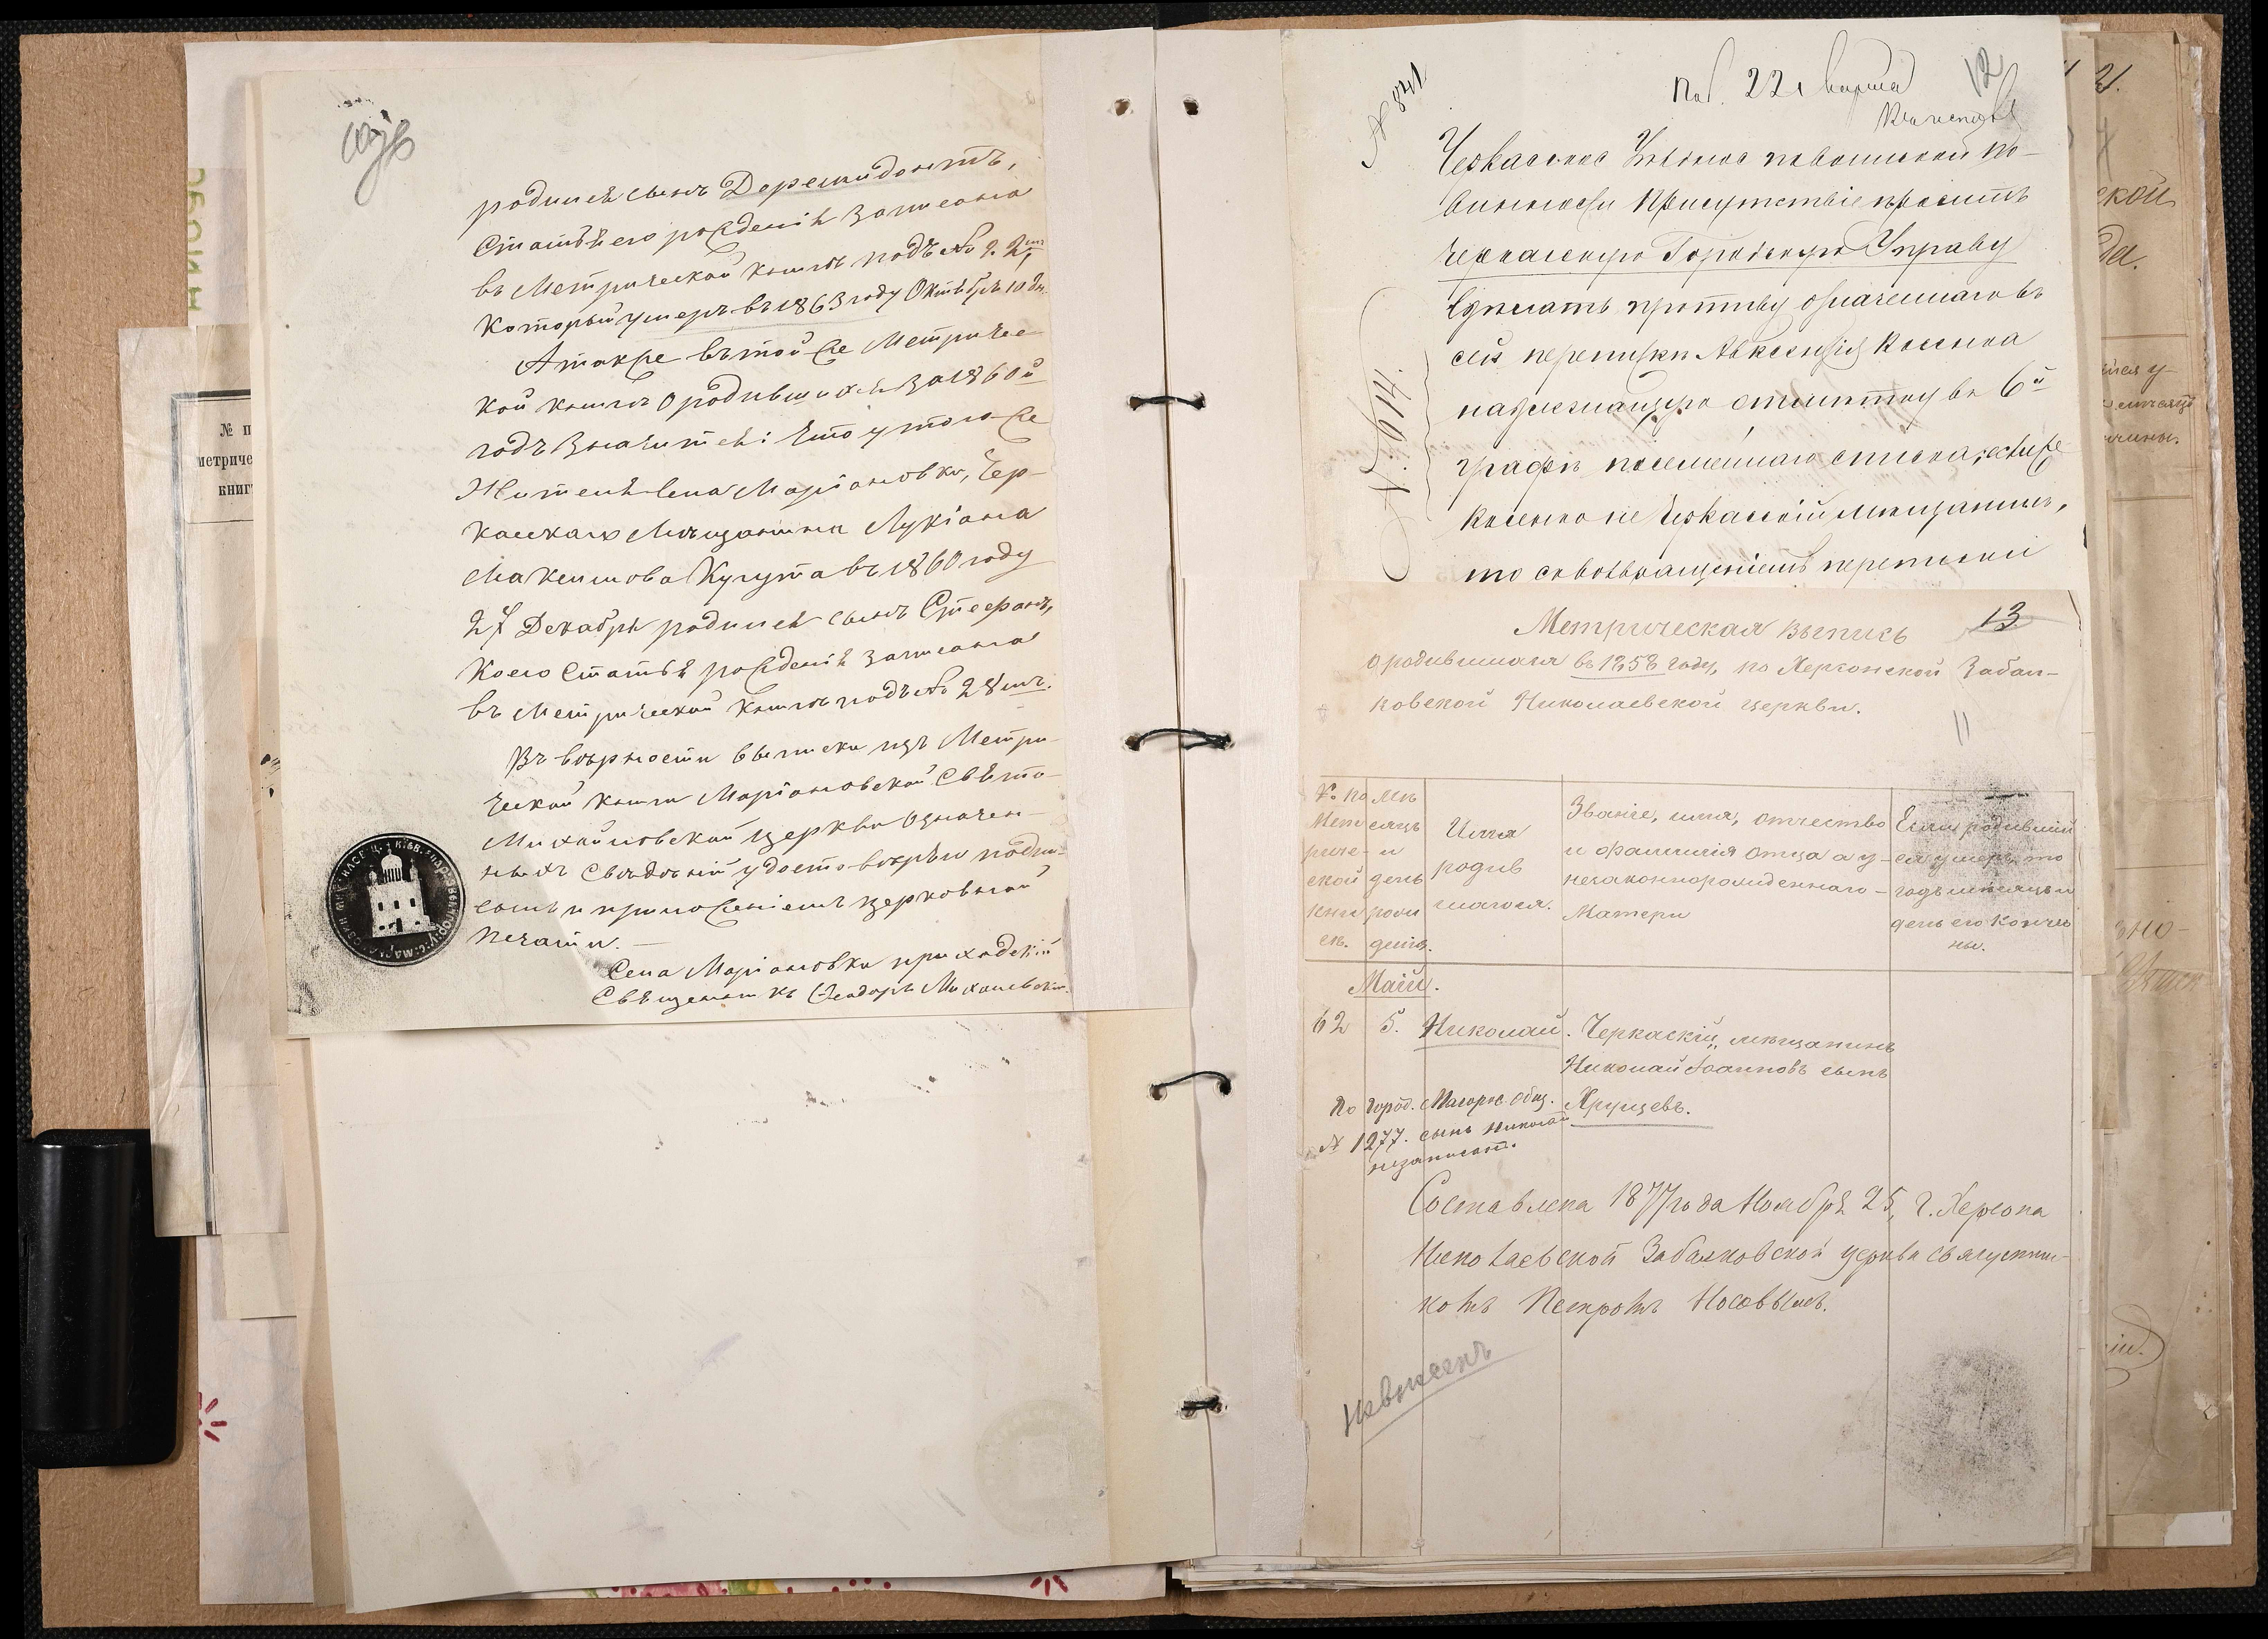 родился сынъ Доремидонтъ,
Статья его рожденія записана
въ Метрической книгѣ подъ № 2. 2мъ,
который умеръ въ 1863 году Октября 10 дн.
А также въ той же Метричес
кой книгѣ о родившихся за 1860й
годъ значится: что у того же
Жителя села Маріановки, Чер-
каскаго Мѣщанина Лукіана
Максимова Кугута въ 1860 году
27 Декабря родился сынъ Стефанъ,
коего Статья рожденія записана
въ Метрической книгѣ подъ № 28мъ.
Въ вѣрности выписки изъ Метри-
ческой книги Маріановской Свято-
Михайловской церкви означен-
ныхъ свѣдѣній удостовѣряю подпи-
сомъ и приложеніемъ церковной
печати. —
Села Маріановки приходскій
Священникъ Ѳеодоръ
№ п
метриче
книг
№ 841
22 Марта
12
Черкаское Уѣздное по воинской по-
винности Присутствіе проситъ
Черкаскую Городскую Управу
сдѣлать противу означеннаго въ
сей перепискѣ Авксентія Косенка
надлежащую отмѣтку въ 6й
графѣ посемейнаго списка, если же
Косенко не Черкаскій мѣщанинъ,
то съ возвращеніемъ переписки
Метрическая выпись
13
о родившимся въ 1858 году, по Херсонской Забал-
ковской Николаевской церкви.
11
№ по Метрической книгѣ.
Мѣсяцъ и день рожденія.
Имя родившагося.
Званіе, имя, отчество и фамилія отца а у незаконнорожденнаго — Матери
Если родившійся умеръ, то годъ мѣсяцъ и день его кончины.
Май.
62 5. Николай. Черкаскій мѣщанинъ
Николай Іоанновъ сынъ
Хрущевъ.
По город. общ.
№ 1277. сынъ Николай
незаписанъ.
Составлена 1877 года Ноября 25, г. Херсона
Николаевской Забалковской церкви священни-
комъ Петромъ Носовымъ.